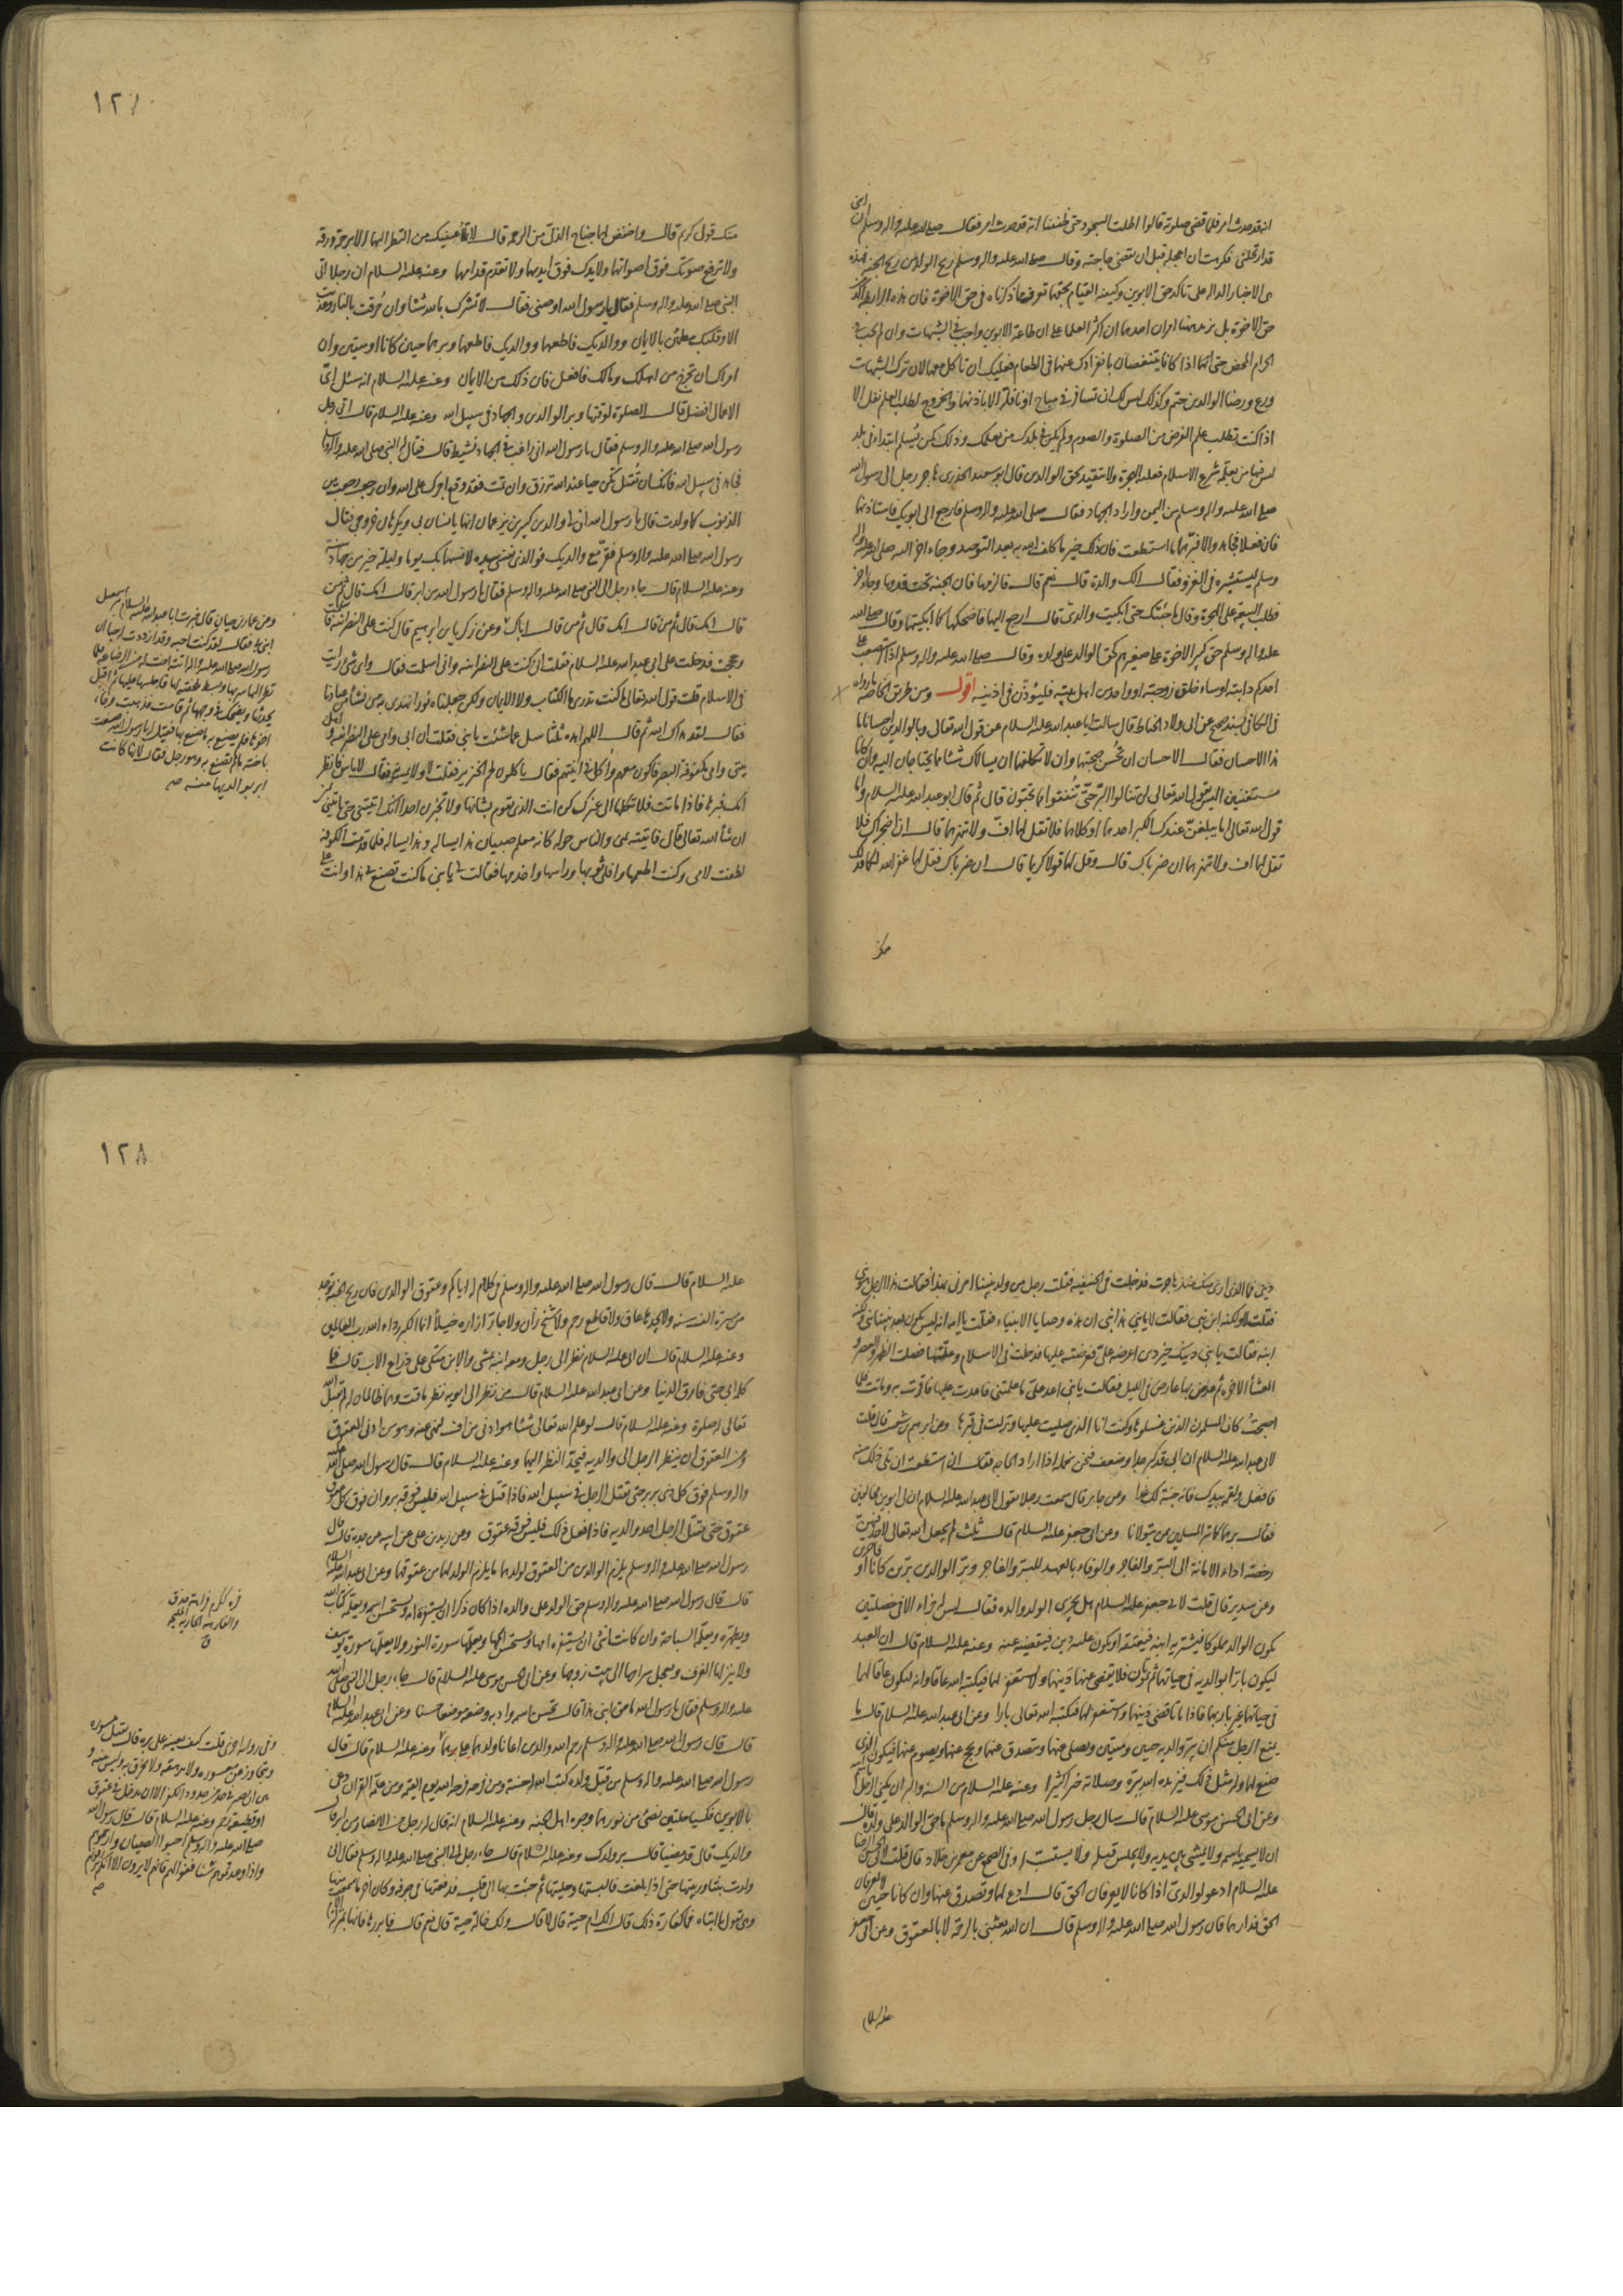 انه قد حدث امر فلما قضى صلوته قالوا اطلت السجود حتى ظننا انه قد حدث امر فقال صلى الله عليه واله وسلم ان ابنى
قد ارتحلنى فكرهت ان اعجله قبل ان يقضى حاجته وقال صلى الله عليه واله وسلم ريح الولد من ريح الجنة فهذه
هى الاخبار الداله على تاكد حق الابوين وكيفيه القيام بحقهما تعرف مما ذكرناه فى حق الاخوة فان هذه الرابطه آكد
من الاخوة بل يزيد ههنا امران احدهما ان اكثر العلما على ان طاعة الابوين واجب فى الشبهات وان لم يجب فى
الحرام المحض حتى انهما اذا كانا يتنغصان بانفرادك عنهما فى الطعام فعليك ان تاكل معهما لان ترك الشبهات
ورع ورضا الوالدين حتم وكذلك ليس لك ان تسافر فى مباح او نافلة الا باذنهما والخروج لطلب العلم نفل الا
اذا كنت تطلب علم الفرض من الصلوة والصوم ولم يكن فى بلدك من يعلمك وذلك كمن يُسلم ابتداء فى بلد
ليس فيها من يعلمه شرع الاسلام فعليه الهجرة ولا يتقيد بحق الوالدين قال ابو سعيد الخدرى هاجر رجل الى رسول الله
صلى الله عليه واله وسلم من اليمن واراد الجهاد فقال صلى الله عليه واله وسلم فارجع الى ابويك فاستاذنهما
فان فعلا فجاهد والا فبرّهما ما استطعت فان ذلك خير ما كلف الله به بعد التوحيد وجاء آخر اليه صلى الله عليه واله
وسلم ليستشيره فى الغزو فقال الك والدة قال نعم قال فالزمها فان الجنة تحت قدمها وجاء آخر
فطلب البيعة على الهجرة وقال ما جئتك حتى ابكيت والدىّ قال ارجع اليهما فاضحكهما كما ابكيتهما وقال صلى الله
عليه واله وسلم حق كبير الاخوة على صغيرهم كحق الوالد على ولده وقال صلى الله عليه واله وسلم اذا استصعب على
احدكم دابته او ساء خلق زوجته او واحد من اهل بيته فليؤذّن فى اذنيه اقول ومن طريق الخاصه ما رواه
فى الكافى بسند صحيح عن ابى ولاد الحناط قال سالت ابا عبد الله عليه السلام عن قول الله تعالى وبالوالدين احسانا ما
هذا الاحسان فقال الاحسان ان تحُسن صحبتهما وان لا تكلفهما ان يسالاك شيئا مما يحتاجان اليه وان كانا
مستغنيين اليس يقول الله تعالى لن تنالوا البرّ حتّى تُنفقوا مما تحبّون قال ثم قال ابو عبد الله عليه السلام واما
قول الله تعالى اما يبلغنّ عندك الكبر احدهما او كلاهما فلا تقل لهما افّ ولا تنهرهما قال ان اضجراك فلا
تقل لهما اف ولا تنهرهما ان ضرباك قال وقل لهما قولا كريما قال ان ضرباك فقل لهما غفر الله لكما فذلك
منك
١٢٧
منك قول كريم قال واخفض لهما جناح الذل من الرحمه قال لا تملأ عينيك من النظر اليهما الا برحمة ورقه
ولا ترفع صوتك فوق اصواتهما ولا يدك فوق ايديهما ولا تقدّم قدامهما وعنه عليه السلام ان رجلا اتى
النبى صلى الله عليه واله وسلم فقال يا رسول الله اوصنى فقال لا تشرك بالله شيئا وان حُرّقت بالنار وعذبت
الا وقلبك مطمئن بالايمان ووالديك فاطعهما ووالديك فاطعهما وبرهما حيين كانا او ميتين وان
امراك ان تخرج من اهلك ومالك فافعل فان ذلك من الايمان وعنه عليه السلام انه سئل اىّ
الاعمال افضل قال الصلوة لوقتها وبر الوالدين والجهاد فى سبيل الله وعنه عليه السلام قال اتى رجل
رسول الله صلى الله عليه واله وسلم فقال يا رسول الله انى راغب فى الجهاد نشيط قال فقال له النبى صلى الله عليه واله وسلم
فجاهد فى سبيل الله فانك ان تُقتل تكن حيا عند الله ترزق وان تمت فقد وقع اجرك على الله وان رجعت رجعت من
الذنوب كما ولدت قال يا رسول الله ان لى والدين كبيرين يزعمان انهما يانسان بى ويكرهان خروجى فقال
رسول الله صلى الله عليه واله وسلم فقرّ مع والديك فو الذى نفسى بيده لانسهما بك يوما وليلة خير من جهاد سنة
وعنه عليه السلام قال جاء رجل الى النبى صلى الله عليه واله وسلم فقال يا رسول الله من ابر قال امك قال ثم من
قال امك قال ثم من قال امك قال ثم من قال اباك وعن زكريا بن ابرهيم قال كنت على النصرانية فاسلمت
وحججت فدخلت على ابى عبد الله عليه السلام فقلت انى كنت على النصرانيه وانى اسلمت فقال واى شئ رايت
فى الاسلام قلت قول الله تعالى ما كنت تدرى ما الكتاب ولا الايمان ولكن جعلناه نُورا نهدى به من نشاء من عبادنا
فقال لقد هداك الله ثم قال اللهم اهده ثلثا سل عما شئت يا بنى فقلت ان ابى وامى على النصرانيه واهل
بيتى وامى مكفوفة البصر فاكون معهم وآكل فى آنيتهم فقال ياكلون لحم الخنزير فقلت لا ولا يمسّونه فقال لا باس فانظر
امك فبرها فاذا ماتت فلا تكلها الى غيرك كن انت الذى تقوم بشانها ولا تخبرن احدا انك اتيتنى حتى تاتينى بمنى
ان شاء الله تعالى قال فاتيته بمنى والناس حوله كانه معلم صبيان هذا يساله وهذا يساله فلما قدمت الكوفة
لطفت لامى وكنت اطعمها وافلى ثوبها وراسها واخدمها فقالت لى يا بنى ما كنت تصنع بى هذا وانت على
وعن عمار بن حيان قال خبرت ابا عبد الله عليه السلام ببر اسمعيل
ابنى بى فقال لقد كنت احبه وقد ازددت له حبا ان
رسول الله صلى الله عليه واله اتته اخت له من الرضاعة فلما
نظر اليها سر بها وبسط ملحفته لها فاجلسها عليها ثم اقبل
يحدثها ويضحك فى وجهها ثم قامت فذهبت وجاء
اخوها فلم يصنع به ما صنع بها فقيل له يا رسول الله صنعت
باخته ما لم تصنع به وهو رجل فقال لانها كانت
ابر بوالديها منه صه
دينى فما الذى ارى منك منذ هاجرت فدخلت فى الحنيفيه فقلت رجل من ولد نبينا امرنى بهذا فقالت هذا الرجل هو نبى
فقلت لا ولكنه ابن نبى فقالت لا يا بنى هذا نبى ان هذه وصايا الانبياء فقلت يا امه انه ليس يكون بعد نبينا نبى ولكنه
ابنه فقالت يا بنى دينك خير دين اعرضه علىّ فعرضته عليها فدخلت فى الاسلام وعلّمتها فصلت الظهر والعصر و
العشاء الاخره ثم عرض بها عارض فى الليل فقالت يا بنى اعد علىّ ما علمتنى فاعدت عليها فاقرت به وماتت فلما
اصبحت كان المسلمون الذين غسلوها وكنت انا الذى صليت عليها ونزلت فى قبرها وعن ابرهيم بن شعيب قال قلت
لابى عبد الله عليه السلام ان ابى قد كبر جدا وضعف فنحن نحمله اذا اراد الحاجه فقال ان استطعت ان تلى ذلك منه
فافعل ولقمه بيدك فانه جنة لك غدا وعن جابر قال سمعت رجلا يقول لابى عبد الله عليه السلام ان لى ابوين مخالفين
فقال برهما كما تبر المسلمين ممن يتولانا وعن ابى جعفر عليه السلام قال ثلث لم يجعل الله تعالى لاحد فيهن
رخصة اداء الامانة الى البر والفاجر والوفاء بالعهد للبر والفاجر وبرّ الوالدين برّين كانا او فاجرين
وعن سدير قال قلت لابى جعفر عليه السلام هل يجزى الولد والده فقال ليس له جزاء الا فى خصلتين
يكون الوالد مملوكا فيشتريه ابنه فيعتقه او يكون عليه دين فيقضيه عنه وعنه عليه السلام قال ان العبد
ليكون بارّا بوالديه فى حياتهما ثم يموتان فلا يقضى عنهما دينهما ولا يستغفر لهما فيكتبه الله عاقا وانه ليكون عاقا لهما
فى حياتهما غير بار بهما فاذا ماتا قضى دينهما واستغفر لهما فيكتبه الله تعالى بارا وعن ابى عبد الله عليه السلام قال ما
يمنع الرجل منكم ان يبرّ والديه حيين وميتين ويصلى عنهما ويتصدق عنهما ويحج عنهما ويصوم عنهما فيكون الذى
صنع لهما وله مثل ذلك فيزيده الله ببره وصلاته خيرا كثيرا وعنه عليه السلام من السنه والبر ان يكنى الرجل باسم ابنه
وعن ابى الحسن موسى عليه السلام قال سال رجل رسول الله صلى الله عليه واله وسلم ما حق الوالد على ولده قال
ان لا يسميه باسمه ولا يمشى بين يديه ولا يجلس قبله ولا يستسبّ له وفى الصحيح عن معمر بن خلاد قال قلت لابى الحسن الرضا
عليه السلام ادعو لوالدىّ اذا كانا لا يعرفان الحق قال ادع لهما وتصدق عنهما وان كانا حيين لا يعرفان
الحق فدارهما فان رسول الله صلى الله عليه واله وسلم قال ان الله بعثنى بالرحمة لا بالعقوق وعن ابى جعفر
عليه السلام
١٢٨
عليه السلام قال قال رسول الله صلى الله عليه واله وسلم فى كلام له اياكم وعقوق الوالدين فان ريح الجنة توجد
من مسيرة الف سنه ولا يجدها عاق ولا قاطع رحم ولا شيخ زان ولا جار ازاره خيلاء انما الكبرياء رداء الله رب العالمين
وعنه عليه السلام قال ان ابى عليه السلام نظر الى رجل ومعه ابنه يمشى والابن متكى على ذراع الاب قال فما
كلمه ابى حتى فارق الدنيا وعن ابى عبد الله عليه السلام قال من نظر الى ابويه نظر ماقت وهما ظالمان له لم يقبل الله
تعالى له صلوة وعنه عليه السلام قال لو علم الله تعالى شيئا هو ادنى من اف لنهى عنه وهو من ادنى العقوق
ومن العقوق ان ينظر الرجل الى والديه فيحدّ النظر اليهما وعنه عليه السلام قال قال رسول الله صلى الله عليه
واله وسلم فوق كل ذى بر بر حتى يقتل الرجل فى سبيل الله فاذا قتل فى سبيل الله فليس فوقه بر وان فوق كل عقوق
عقوق حتى يقتل الرجل احد والديه فاذا فعل ذلك فليس فوقه عقوق وعن زيد بن على عن ابيه عن جده قال قال
رسول الله صلى الله عليه واله وسلم يلزم الوالدين من العقوق لولدهما ما يلزم الولد لهما من عقوقهما وعن ابى عبد الله عليه السلام
قال قال رسول الله صلى الله عليه واله وسلم حق الولد على والده اذا كان ذكرا ان يستفره امه ويستحسن اسمه ويعلمه كتاب الله
ويطهره ويعلّمه السباحة وان كانت انثى ان يستفره امها ويستحسن اسمها ويعلمها سورة النور ولا يعلّمها سورة يوسف
ولا ينزلها الغرف ويعجل سراحها الى بيت زوجها وعن ابى الحسن موسى عليه السلام قال جاء رجل الى النبى صلى الله
عليه واله وسلم فقال يا رسول الله ما حق ابنى هذا قال تحسن اسمه وادبه وضعه موضعا حسنا وعن ابى عبد الله عليه السلام
قال قال رسول الله صلى الله عليه واله وسلم رحم الله والدين اعانا ولدهما على برهما وعنه عليه السلام قال قال
رسول الله صلى الله عليه واله وسلم من قبّل ولده كتب الله له حسنة ومن فرحه فرحه الله يوم القيمة ومن علّمه القران دعى
بالابوين فكسيا حلتين يضئ من نورهما وجوه اهل الجنه وعنه عليه السلام انه قال له رجل من الانصار من ابر قال
والديك قال قد مضيا قال بر ولدك وعنه عليه السلام قال جاء رجل الى النبى صلى الله عليه واله وسلم فقال انى
ولدت بنتا وربيتها حتى اذا بلغت فالبستها وحليتها ثم جئت بها الى قليب فدفعتها فى جوفه وكان آخر ما سمعت منها
وهى تقول يا ابتاه فما كفارة ذلك قال الك ام حية قال لا قال ولك خالة حية قال نعم قال فابررها فانها بمنزلة الام
وفى رواية اخرى قلت كيف يعينه على بره قال يقبل ميسوره
ويتجاوز عن معسوره ولا يرهقه ولا يخرق به وليس بينه و
بين ان يصير فى حد من حدود الكفر الا ان يدخل فى عقوق
او قطيعة رحم وعنه عليه السلام قال قال رسول الله
صلى الله عليه واله وسلم احبوا الصبيان وارحموهم
واذا وعدتموهم شيئا ففوا لهم فانهم لا يرون الا انكم ترزقونهم
صه